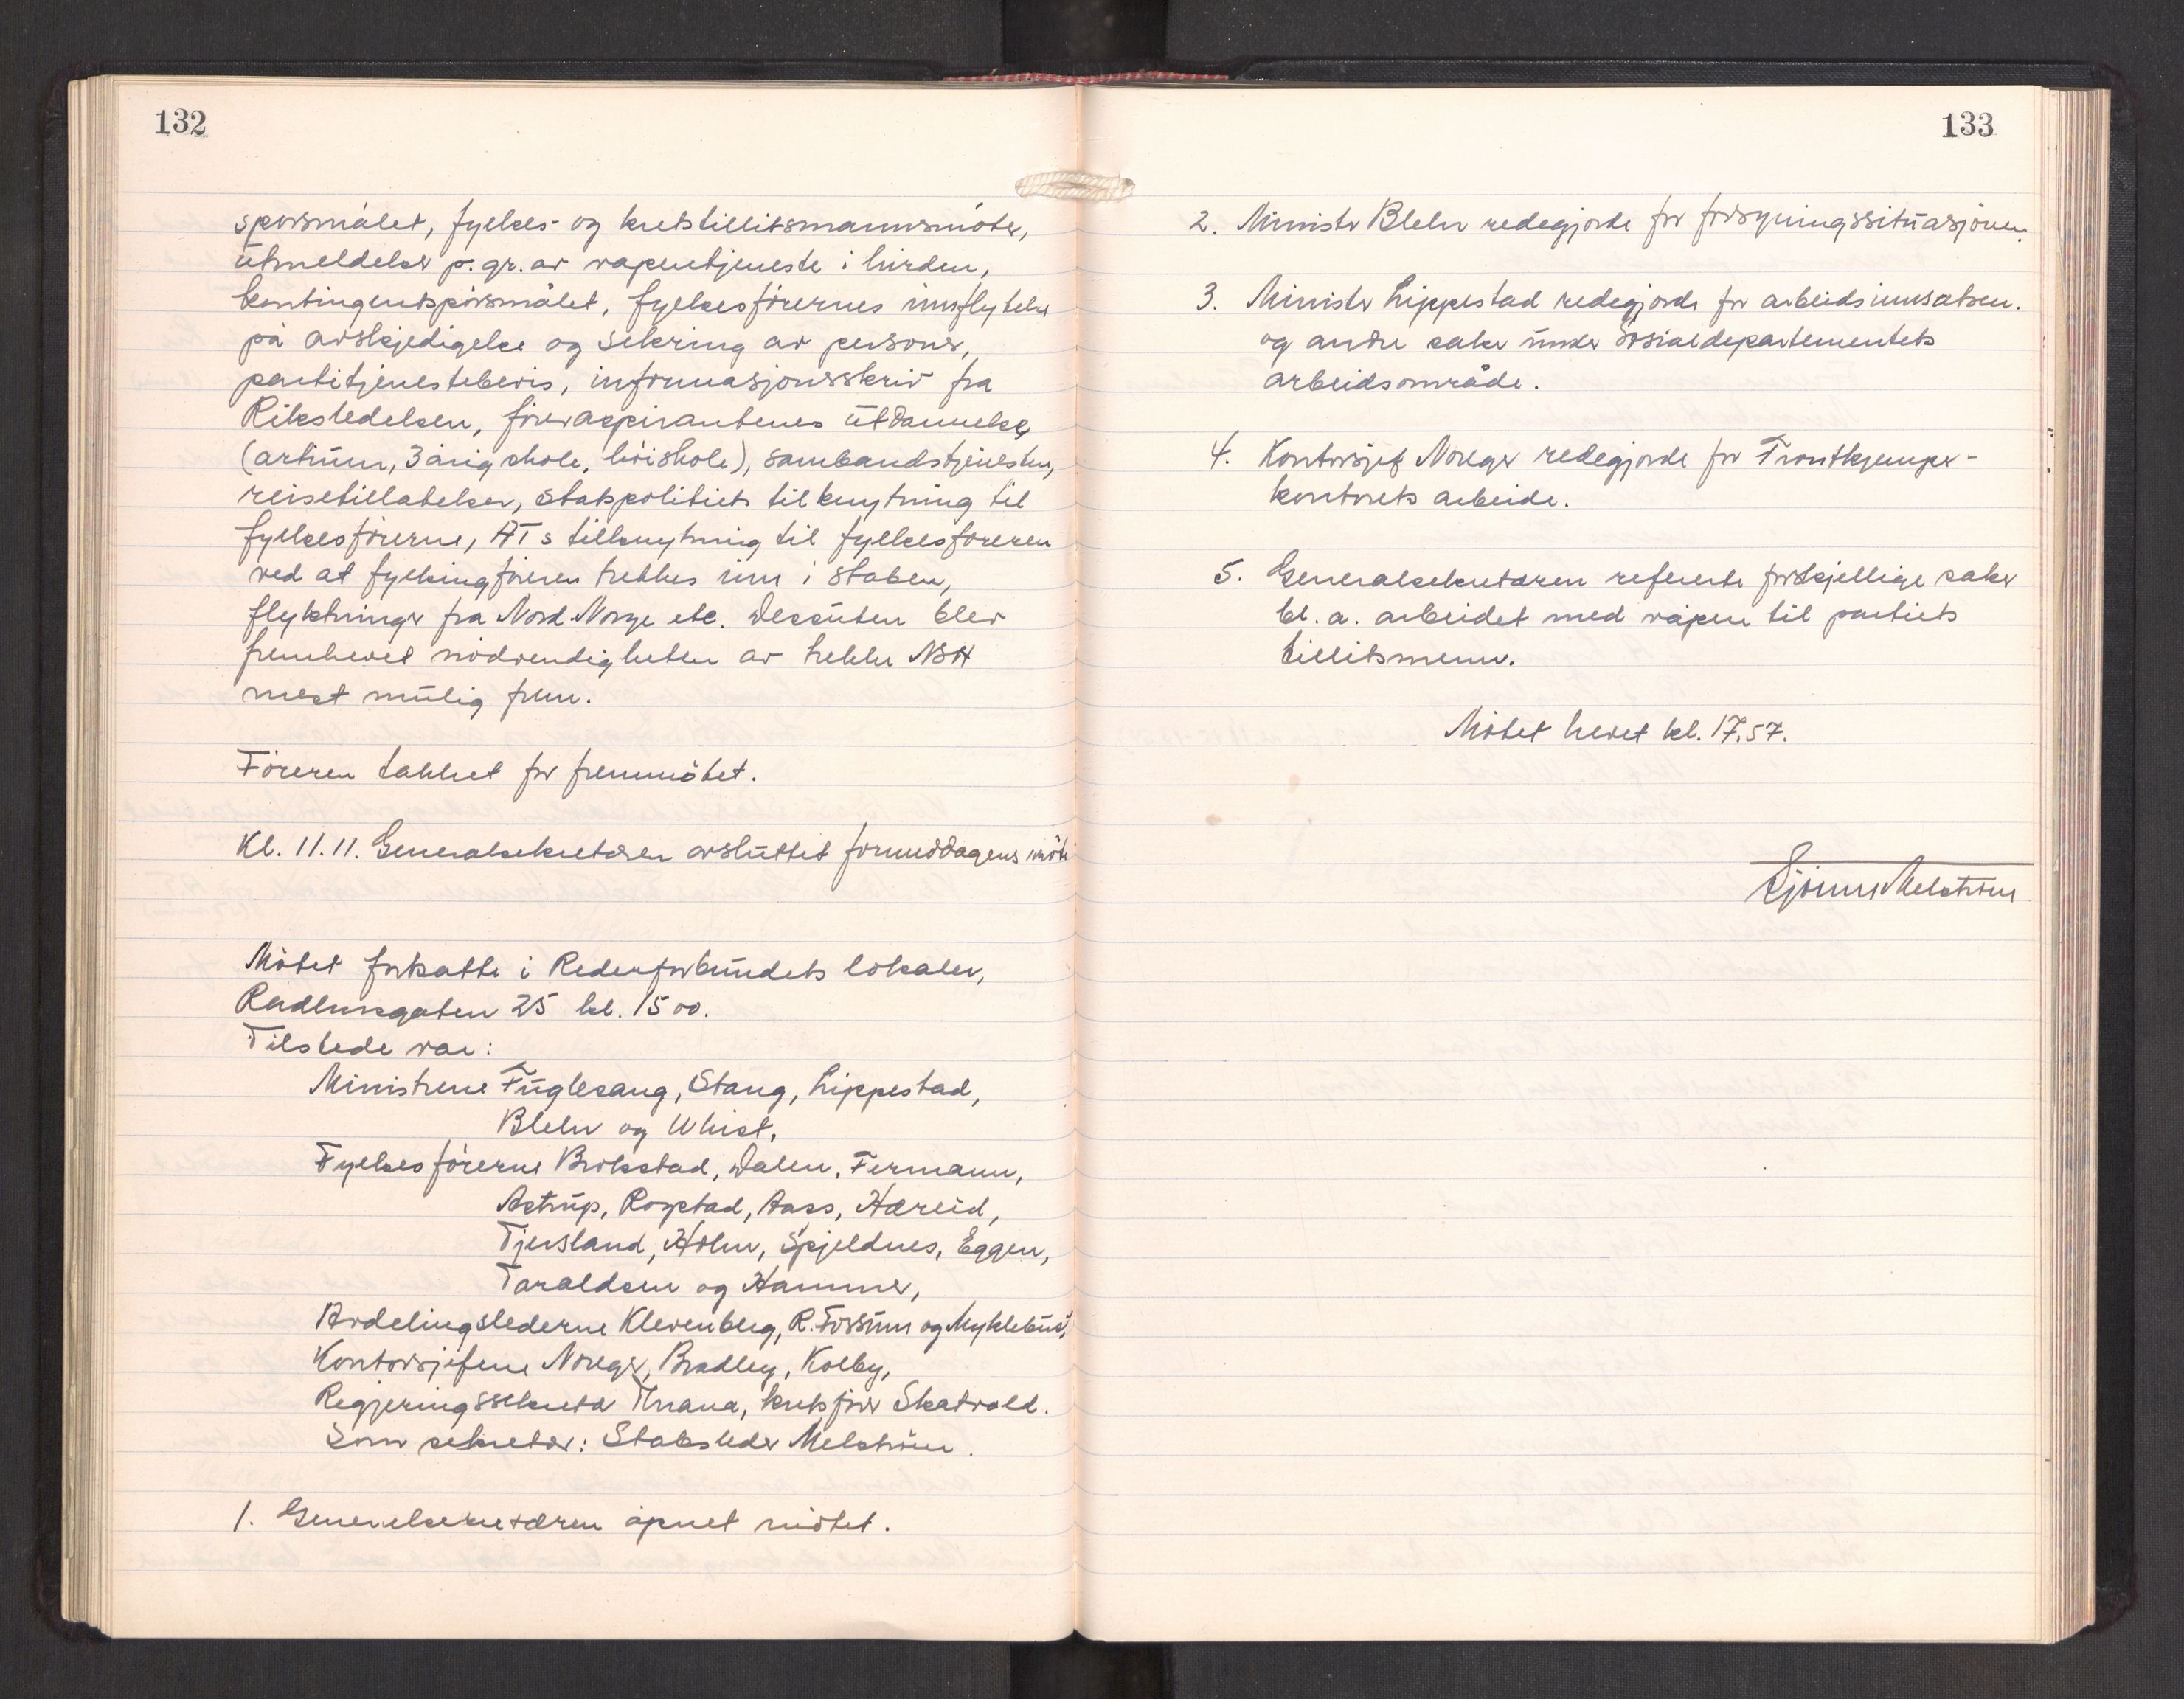 132
spörsmålet, fylkes- og kretstillitsmannsmöter,
utmeldelser p.gr.av våpentjeneste i hirden,
kontingentspörsmålet, fylkesförernes innflytelse
på avskjedigelse og sikring av personer,
partitjenestebevis, informasjonsskriv fra
Riksledelsen, föreraspirantenes utdannelse
(artium, 3 årig skole, höiskole), sambandstjenesten,
reisetillatelser, statspolitiets tilknytning til
fylkesförerne, ATs tilknytning til fylkesföreren
ved at fylkingföreren trekkes inn i staben,
flyktninger fra Nord-Norge etc. Dessuten blev
fremhevet nödvendigheten av trekke NSH
mest mulig frem.
Föreren takket for fremmötet.
Kl. 11.11. Generalsekretæren avsluttet formiddagens möte
Mötet fortsatte i Rederforbundets lokaler,
Rådhusgaten 25 kl. 15 00.
Tilstede var:
Ministrene Fuglesang, Stang, Lippestad,
Blehr og Whist,
Fylkesförerne Brokstad, Dalen, Fermann,
Astrup, Rogstad, Aass, Hæreid,
Tjersland, Holm, Spjeldnes, Eggen,
Taraldsen og Hammer,
Avdelingslederne Klevenberg, R. Fossum og Myklebust,
Kontorsjefene Noreger, Bradley, Kolby,
Regjeringssekretær Thrana, kretsförer Skatvold.
Som sekretær: Stabsleder Melström.
1. Generalsekretæren åpnet mötet.
133
2. Minister Blehr redegjorde for forsyningssituasjonen.
3. Minister Lippestad redegjorde for arbeidsinnsatsen.
og andre saker under Sosialdepartementets
arbeidsområde.
4. Kontorsjef Noreger redegjorde for Frontkjemper-
kontorets arbeide.
5. Generalsekretæren refererte forskjellige saker
bl. a. arbeidet med våpen til partiets
tillitsmenn.
Mötet hevet kl. 17.57.
Melström